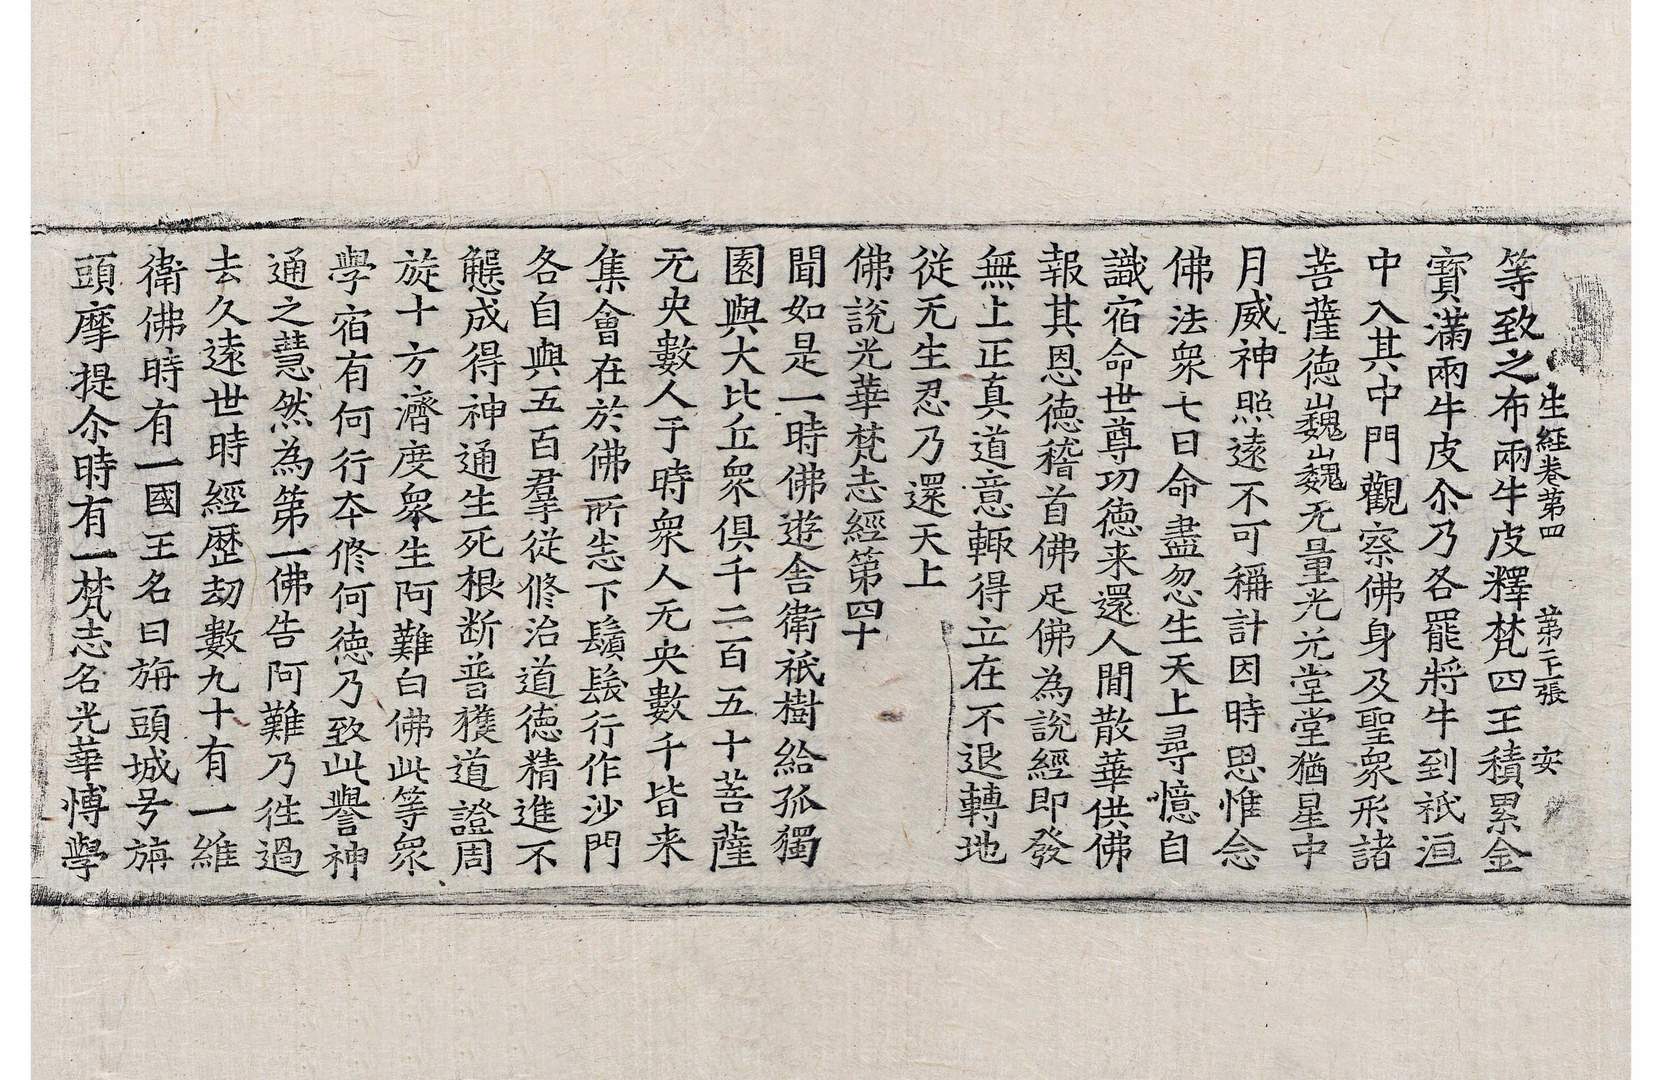 生経卷第四　第二十張　安
等致之布兩牛皮釋梵四王積累金
寳滿兩牛皮尒乃各罷將牛到祇洹
中入其中門觀察佛身及聖衆形諸
菩薩德巍巍无量光光堂堂猶星中
月威神照遠不可稱計因時恩惟念
佛法衆七日命盡忽生天上尋憶自
識宿命世尊功德来還人間散華供佛
報其恩德稽首佛足佛為說經即發
無上正真道意輙得立在不退轉地
從无生忍乃還天上
佛說光華梵志經第四十
聞如是一時佛遊舍衛祇樹給孤獨
園與大比丘衆俱千二百五十菩薩
无央數人于時衆人无央數千皆来
集會在於佛所悉下鬚髮行作沙門
各自與五百羣從修治道德精進不
懈成得神通生死根断普獲道證周
旋十方濟度衆生阿難白佛此等衆
學宿有何行夲修何德乃致此譽神
通之慧然為第一佛告阿難乃徃過
去久遠世時經歷劫數九十有一維
衛佛時有一國王名曰旃頭城号旃
頭摩提尒時有一梵志名光華博學